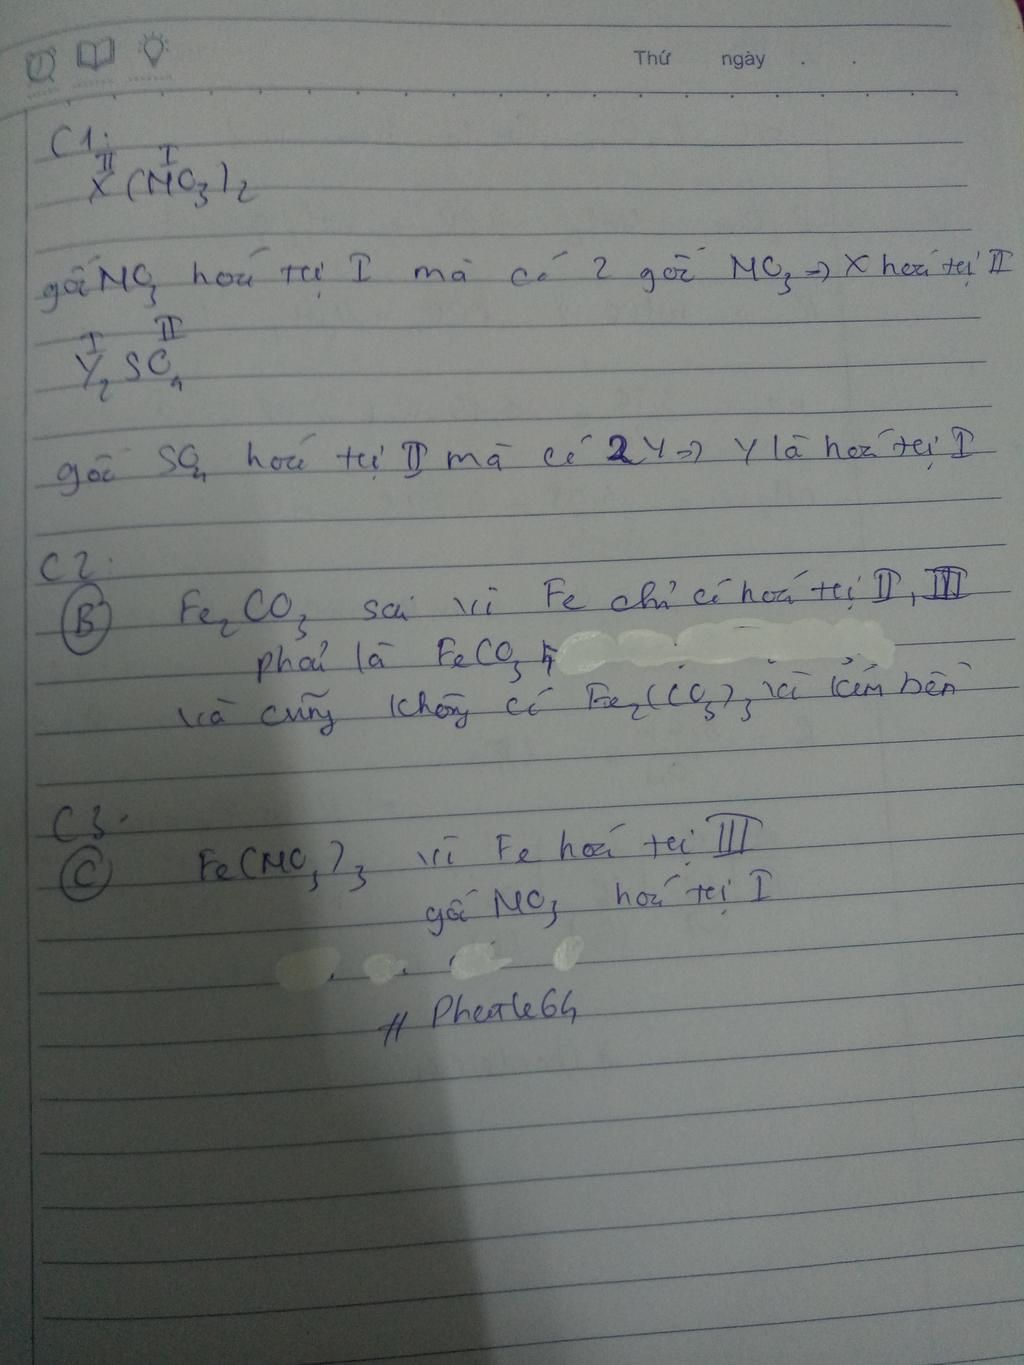 Thứ ngày . .
C1:
II I
X(NO3)2
gốc NO3 hoá trị I mà có 2 gốc NO3 => X hoá trị II
I II
Y2 SO4
gốc SO4 hoá trị II mà có 2Y => Y là hoá trị I
C2:
B Fe2CO3 sai vì Fe chỉ có hoá trị II, III
phải là FeCO3
và cũng không có Fe2(CO3)3 vì kém bền
C3.
C Fe(NO3)3 vì Fe hoá trị III
gốc NO3 hoá trị I